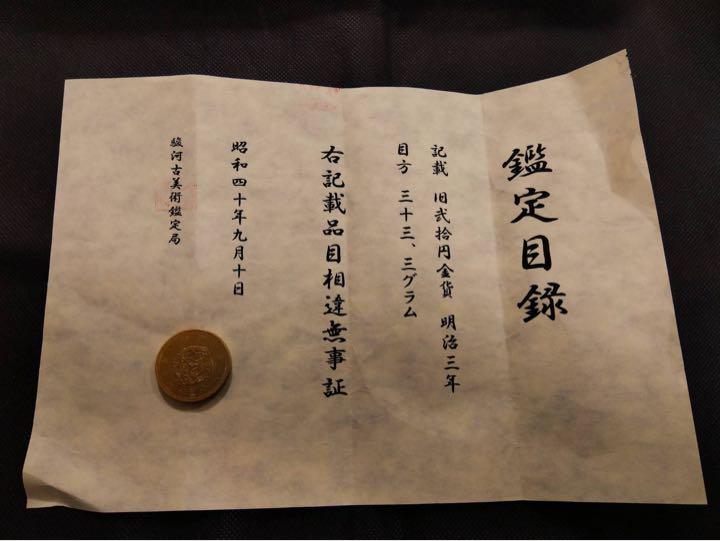 鑑定目録
記載 旧弐拾円金貨 明治三年
目方 三十三、三グラム
右記載品目相違無事証
昭和四十年九月十日
駿河古美術鑑定局